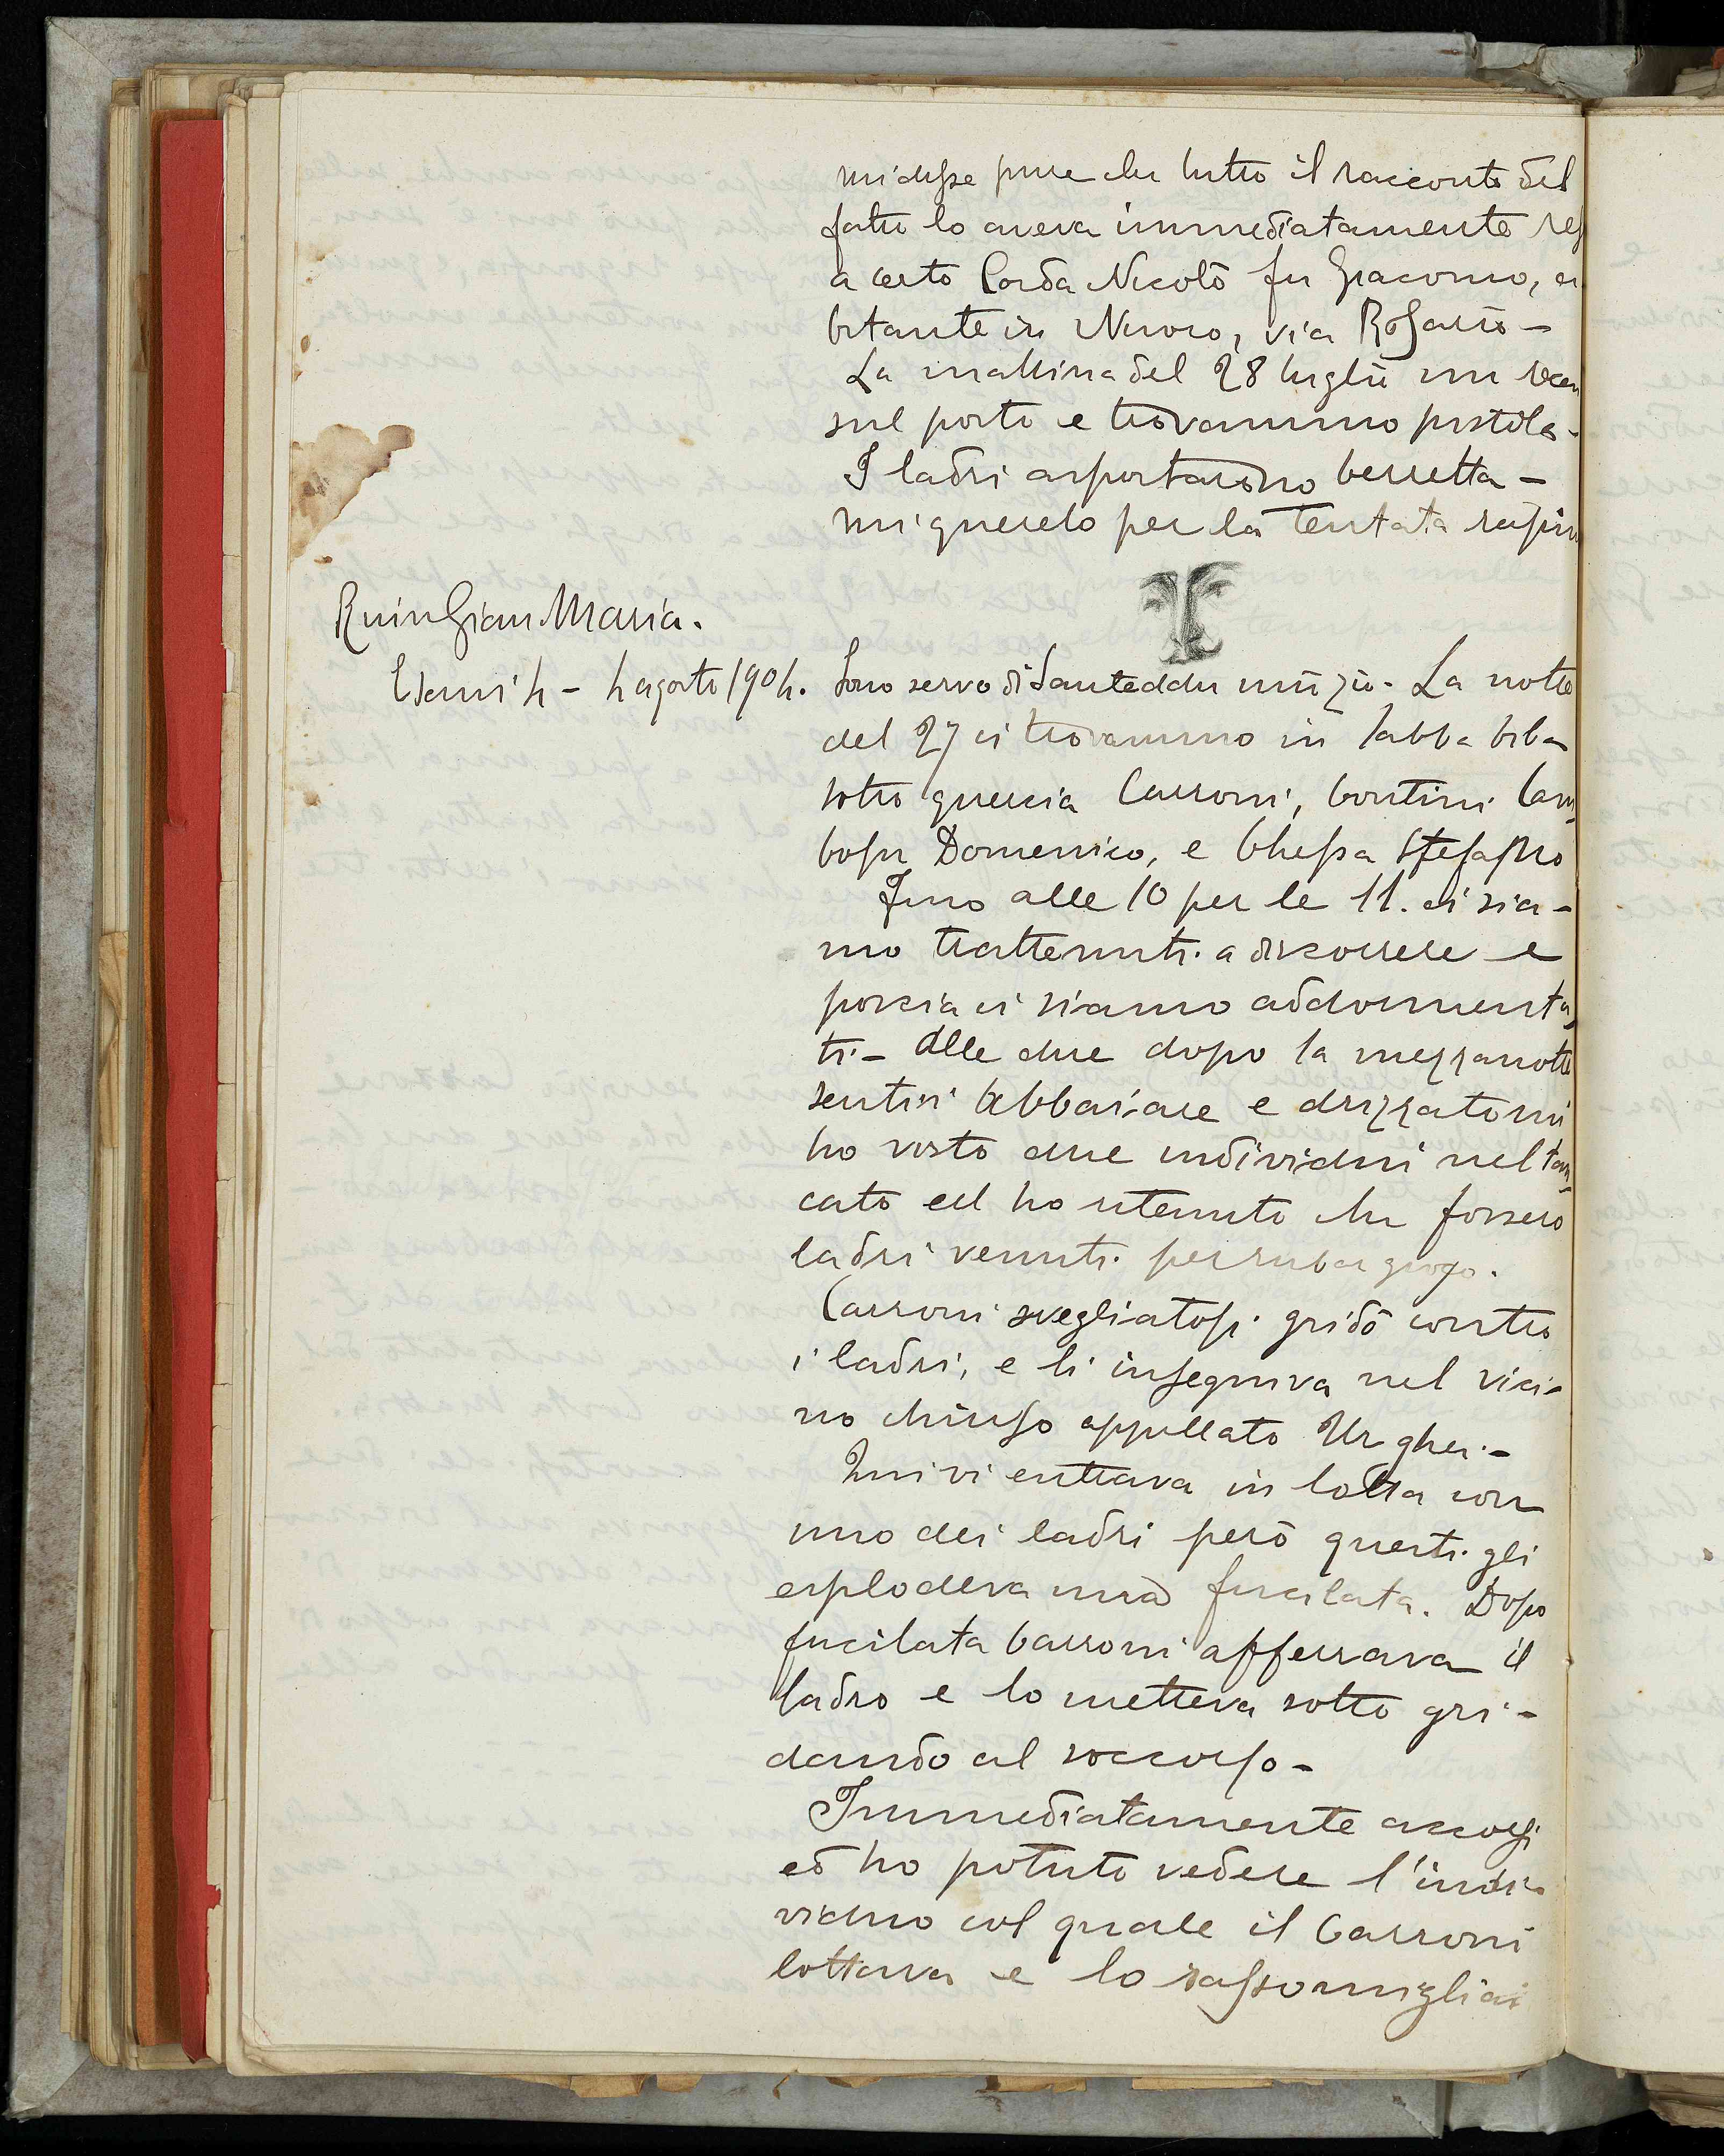 mi disse pure che tutto il racconto del
fatto lo aveva immediatamente
a certo Corda Nicolò fu Giacomo, a
bitante in Nuoro, via Rosario -
La mattina del 28 luglio mi recai
sul posto e trovammo pistola -
I ladri asportarono berretta -
mi querelo per la tentata rapin
Ruiu Gian Maria.
Esami 4 - 4 agosto 1904.
Sono servo di Santeddu Nunzio - La notte
del 27 ci trovammo in
sotto quercia Carroni, Contini Cam,
bosu Domenico, e Chessa Stefano
Fino alle 10 per le 11. ci sia -
mo trattenuti a discorrere e
poscia ci siamo addormenta,
ti - Alle due dopo la mezzanotte
sentivi abbaiare e drizzatomi
ho visto due individui nel tan,
cato ed ho ritenuto che fossero
ladri venuti per rubar giogo.
Carroni svegliatosi gridò contro
i ladri, e li inseguiva nel vici-
no chiuso appellato Urghei -
Quivi entrava in lotta con
uno dei ladri però questi gli
esplodeva una fucilata. Dopo
fucilata Carroni afferrava il
ladro e lo metteva sotto gri -
dando al soccorso -
Immediatamente accorsi
ed ho potuto vedere l'indi-
viduo col quale il Carroni
lottava e lo rassomigliai